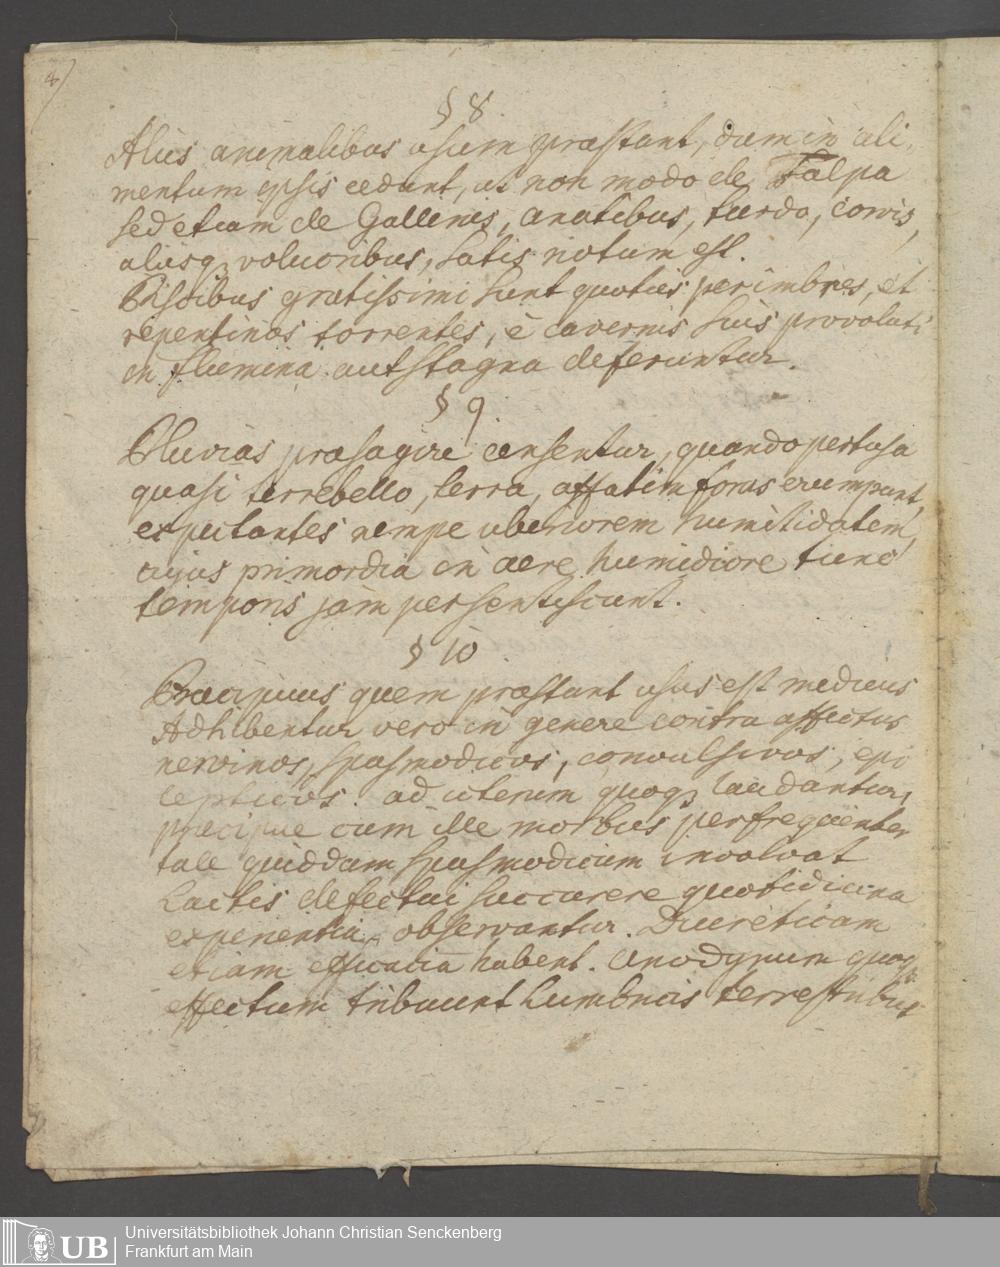 4)
§ 8
Aliis animalibus usum præstant, dum in ali-
mentum ipsis cedunt, ut non modo de Talpa
sed etiam de Gallinis, anatibus, turdo, corvis,
aliisq volucribus, satis notum est.
Piscibus gratissimi sunt quoties per imbres, et
repentinos torrentes, è cavernis suis provoluti
in flumina aut stagna deferuntur.
§ 9
Pluvias præsagire censentur, quando pertusa
quasi terrebello, terra, affatim foras erumpunt,
expectantes nempe uberiorem humiditatem,
cujus primordia in aere humidiore tunc
temporis jam persentiscunt.
§ 10
Præcipuus quem præstant usus est medicus
Adhibentur vero in genere contra affectus
nervinos, spasmodicos, convulsivos, epi
lepticos. ad uterum quoq laudantur,
præcipue cum ille morbus perfrequenter
tale quiddam spasmodicum involvat
Lactis defectui succurere quotidiana
experientia observantur. Diureticam
etiam efficaciã habent. anodynum quoq
effectum tribuunt Lumbricis terrestribus
Universitätsbibliothek Johann Christian Senckenberg
UB Frankfurt am Main